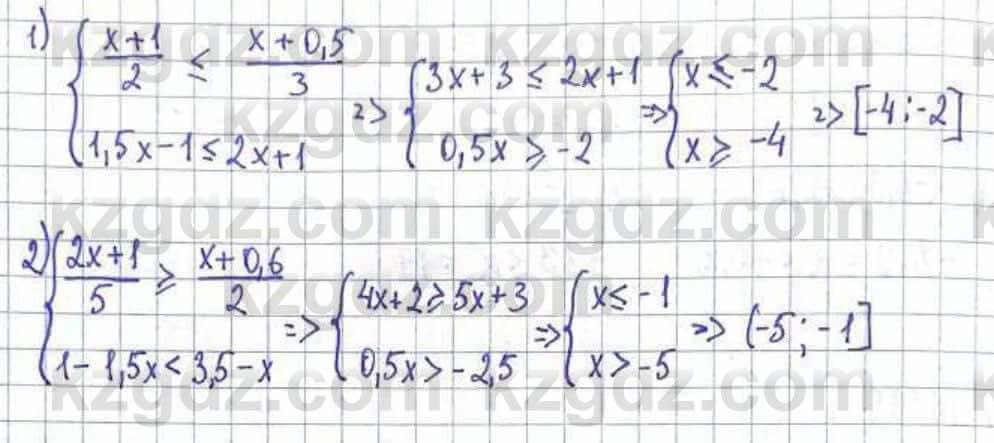 1) { (x+1)/2 ≤ (x+0,5)/3 ; 1,5x-1 ≤ 2x+1 => { 3x+3 ≤ 2x+1 ; 0,5x ≥ -2 => { x ≤ -2 ; x ≥ -4 => [-4;-2]
2) { (2x+1)/5 ≥ (x+0,6)/2 ; 1-1,5x < 3,5-x => { 4x+2 ≥ 5x+3 ; 0,5x > -2,5 => { x ≤ -1 ; x > -5 => (-5;-1]
kzgdz.com kzgdz.com
kzgdz.com kzgdz.com
kzgdz.com kzgdz.com
kzgdz.com kzgdz.com
kzgdz.com kzgdz.com